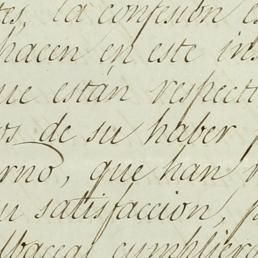 tes, la confesión es
hacen en este ins
que están respecti
os de su haber p
erno, que han r
su satisfacción, p
lbaceas cumpliero